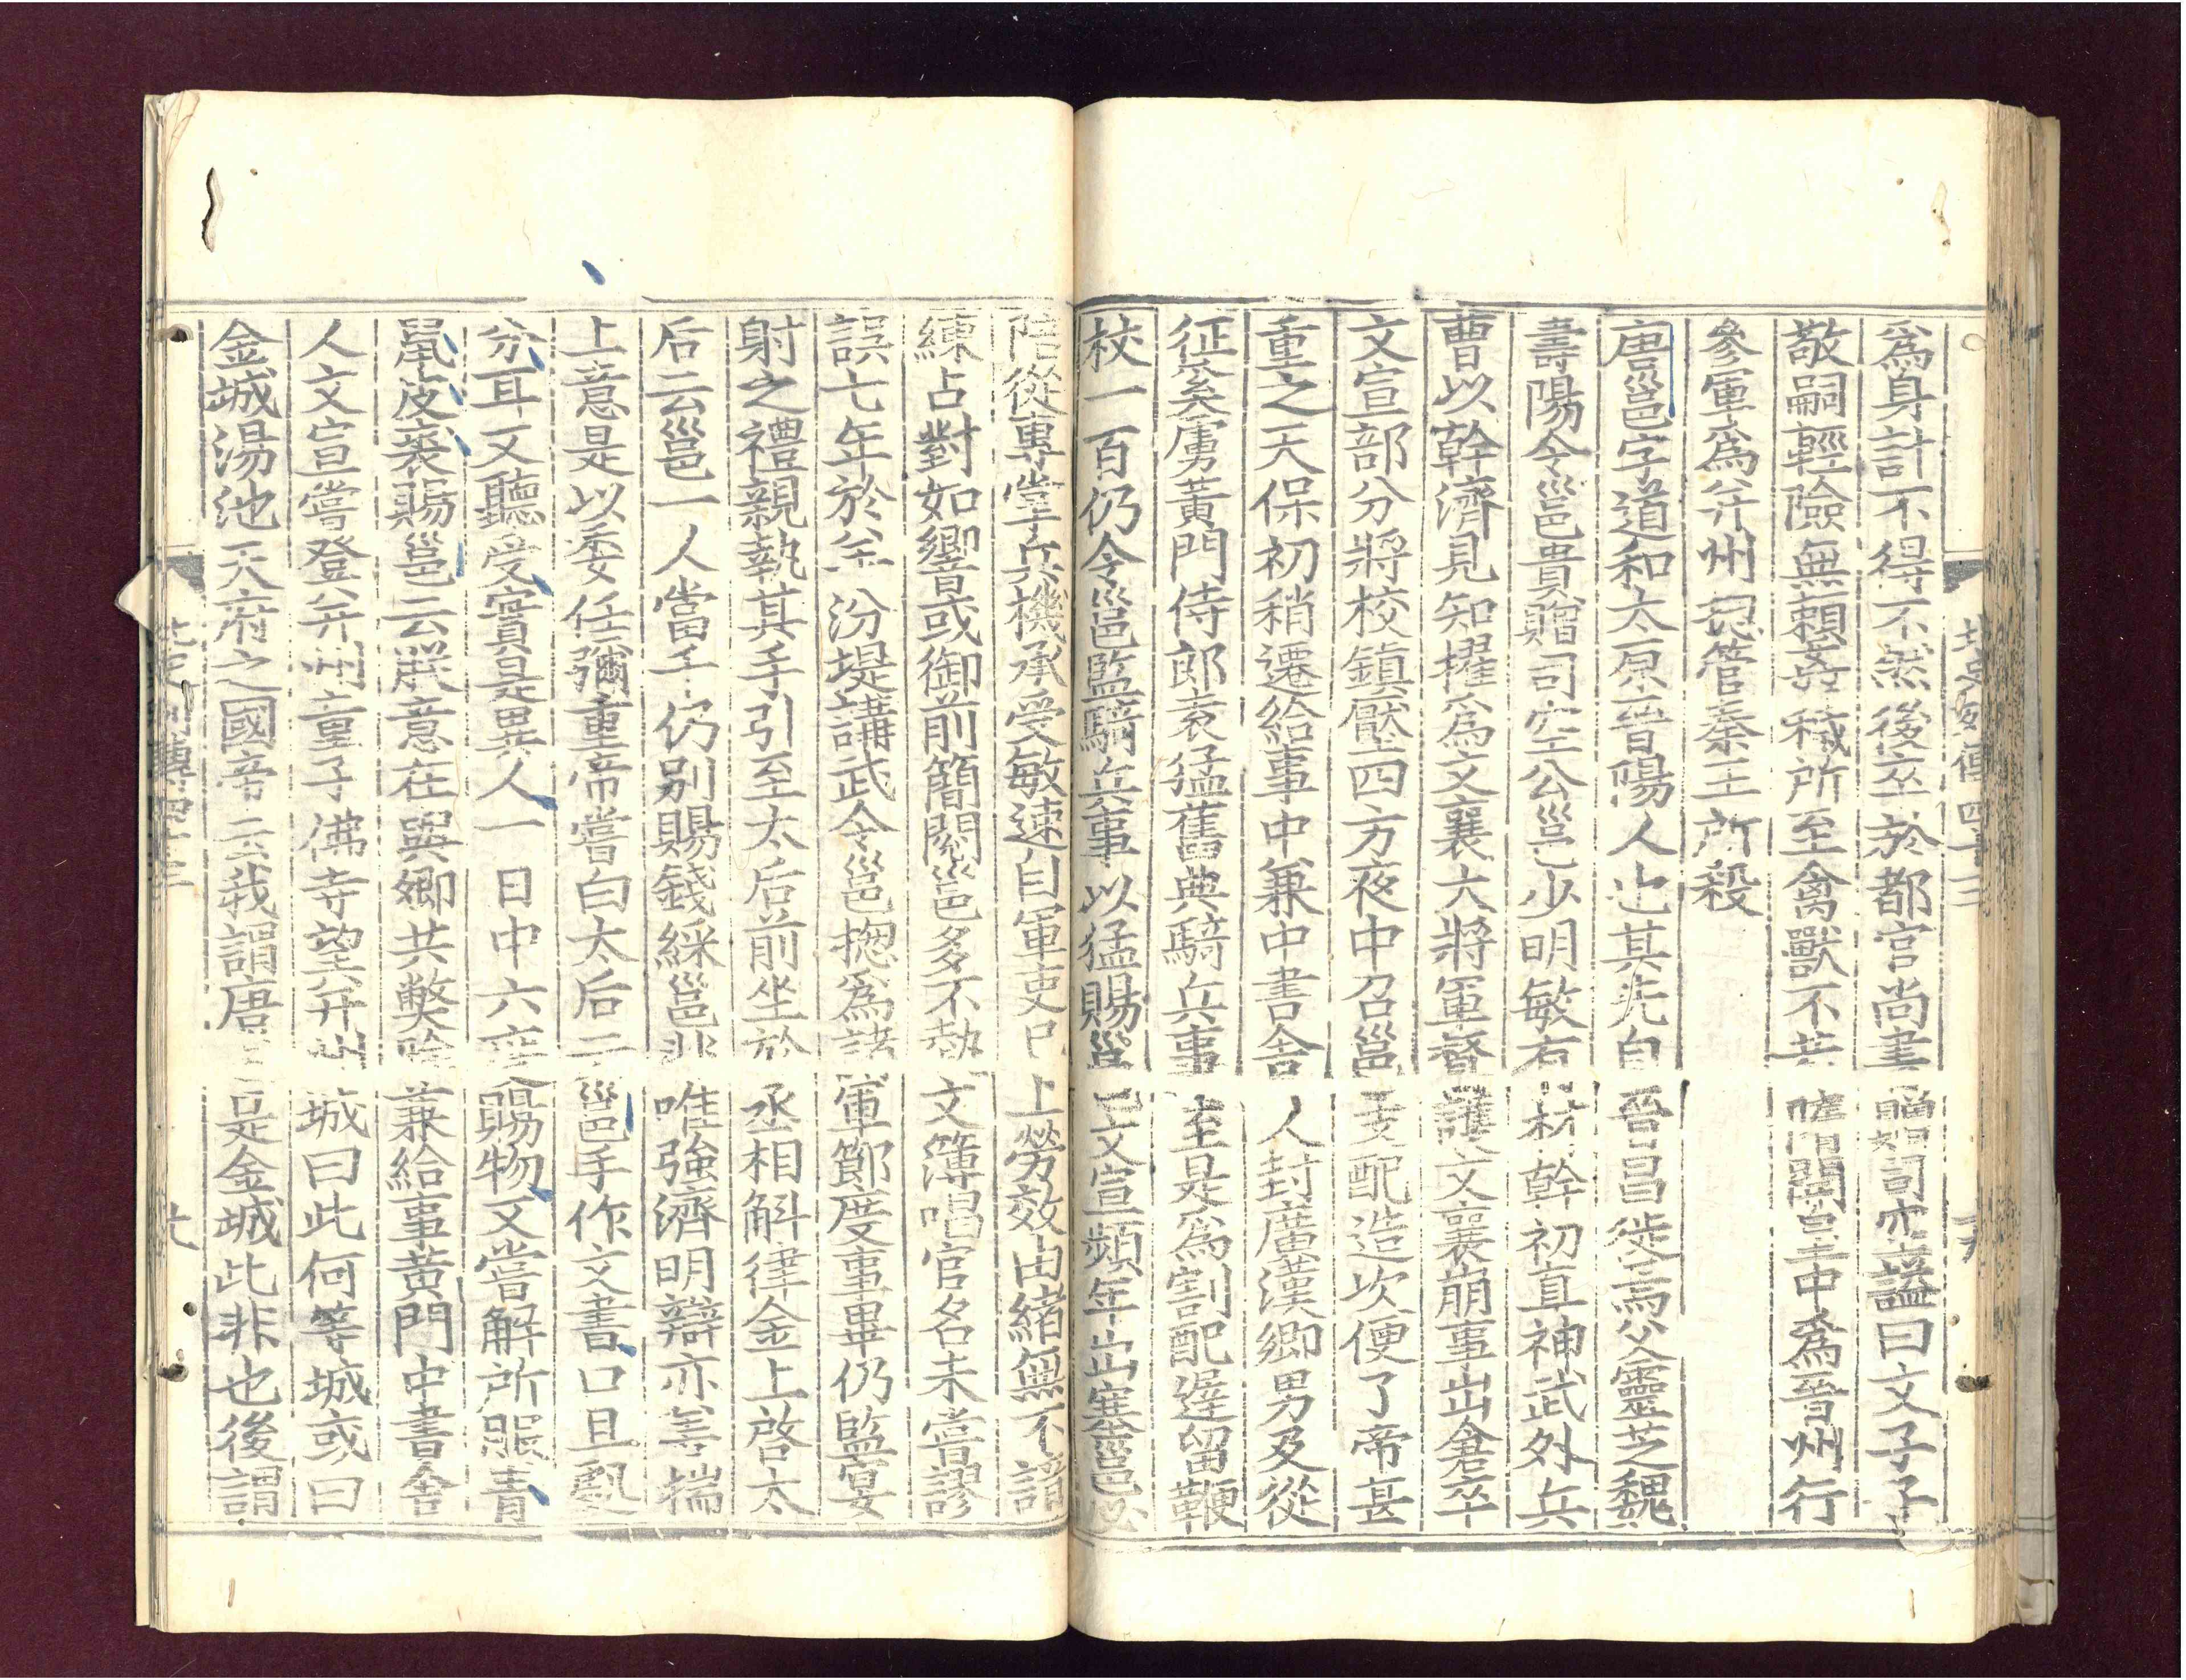 北史列傳四十三
爲身計不得不然後卒於都官尚書贈司空謚曰文子子
敬嗣輕險無賴姦穢所至禽獸不若隋開皇中爲晉州行
參軍爲幷州摠管秦王所殺
唐邕字道和太原晉陽人也其先自晉昌徙焉父靈芝魏
壽陽令邕貴贈司空公邕少明敏有材幹初直神武外兵
曹以幹濟見知擢爲文襄大將軍督護文襄崩事出倉卒
文宣部分將校鎮壓四方夜中召邕支配造次便了帝甚
重之天保初稍遷給事中兼中書舍人封廣漢鄉男及從
征奚虜黃門侍郎袁猛舊典騎兵事至是爲割配遲留鞭
杖一百仍令邕監騎兵事以猛賜邕文宣頻年出塞邕必
陪從專掌兵機承受敏速自軍吏已上勞效由緒無不諳
練占對如響或御前簡閱邕多不執文簿唱官名未嘗謬
誤七年於羊汾堤講武令邕摠爲諸軍節度事畢仍監宴
射之禮親執其手引至太后前坐於丞相斛律金上啓太
后云邕一人當千仍別賜錢綵邕非唯強濟明辯亦善揣
上意是以委任彌重帝嘗白太后云邕手作文書口且處
分耳又聽受實是異人一日中六度賜物又嘗解所服青
鼠皮裘賜邕云朕意在與卿共弊除兼給事黃門中書舍
人文宣嘗登幷州童子佛寺望幷州城曰此何等城或曰
金城湯池天府之國帝云我謂唐邕是金城此非也後謂